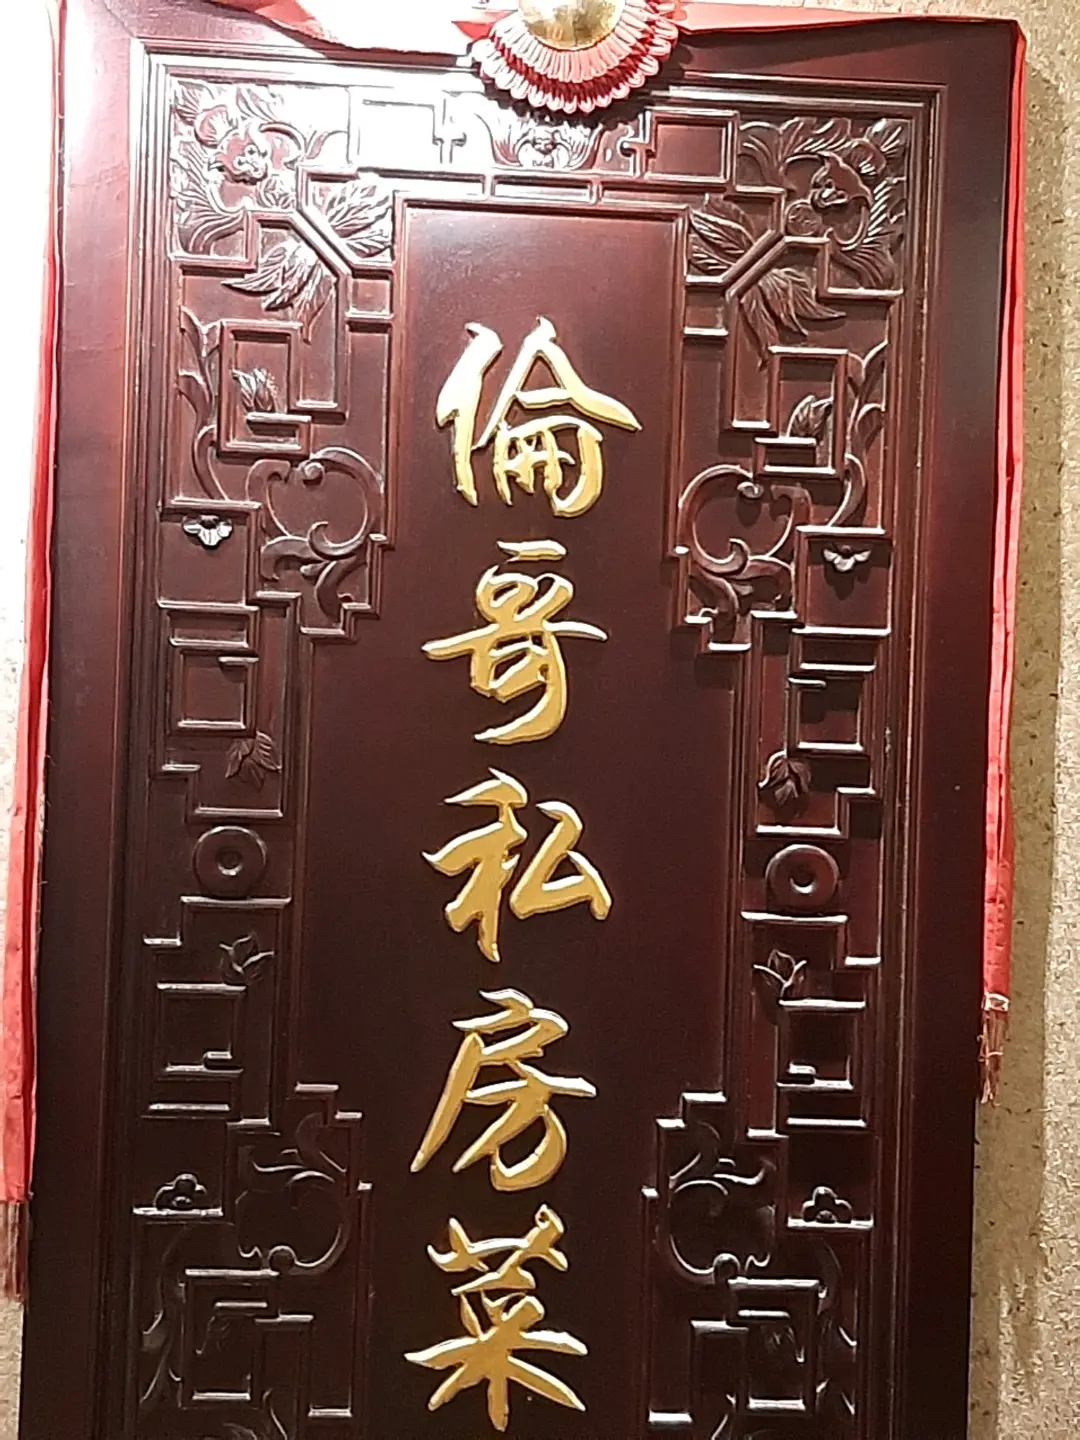 倫哥私房菜